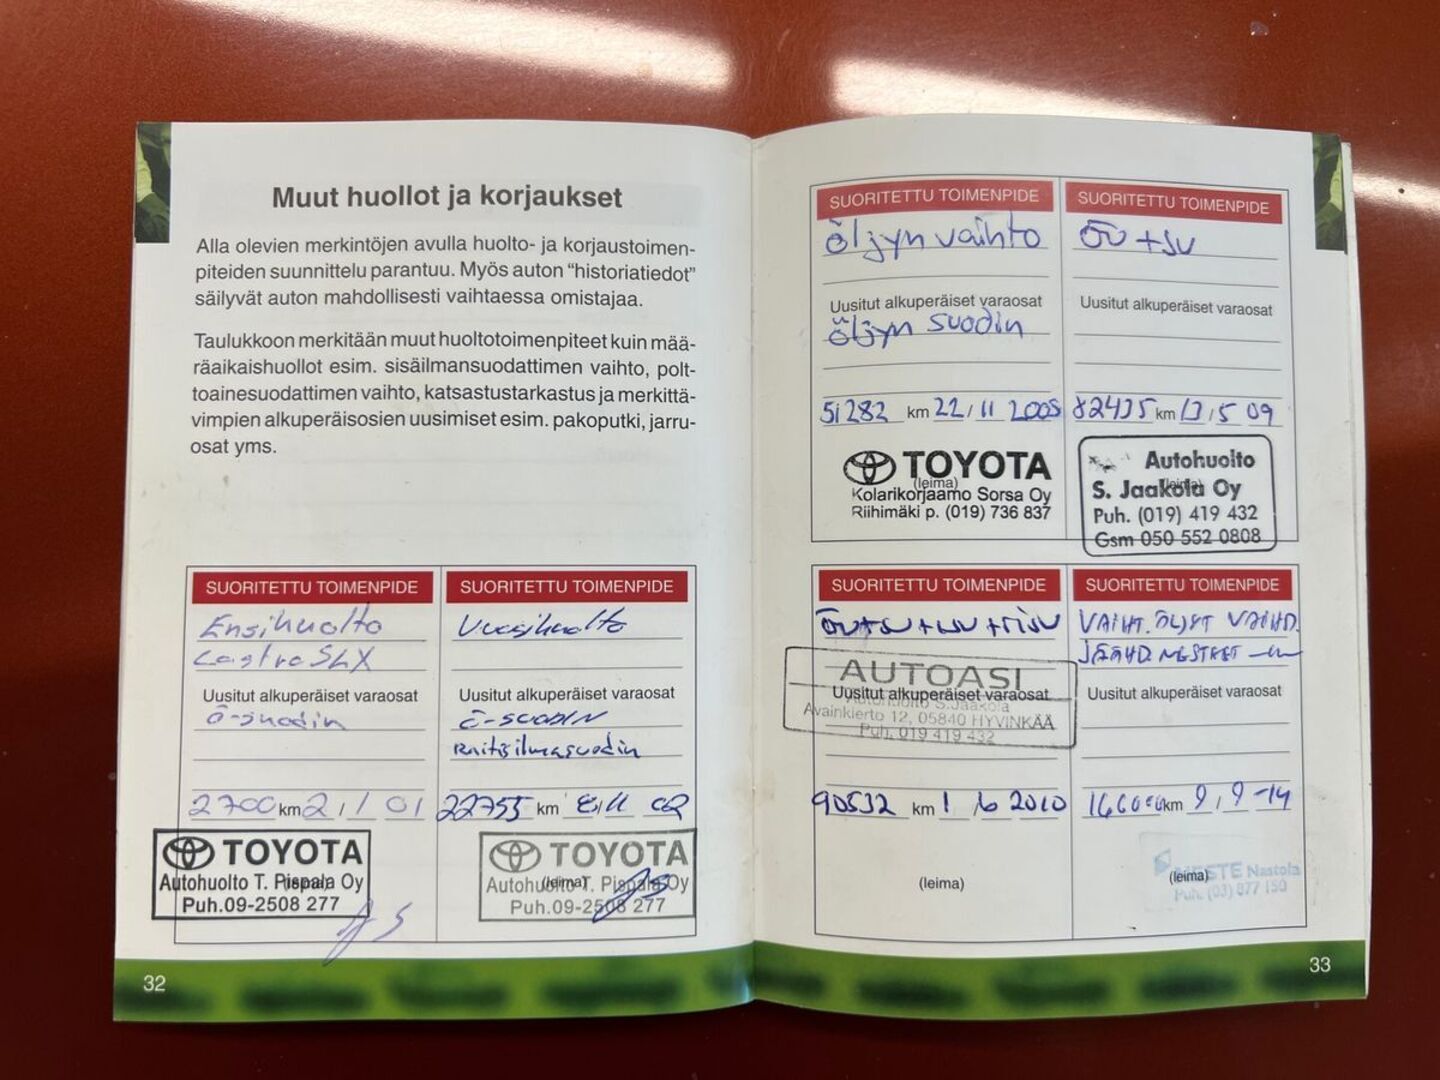 Muut huollot ja korjaukset
Alla olevien merkintöjen avulla huolto- ja korjaustoimen-
piteiden suunnittelu parantuu. Myös auton “historiatiedot”
säilyvät auton mahdollisesti vaihtaessa omistajaa.
Taulukkoon merkitään muut huoltotoimenpiteet kuin mää-
räaikaishuollot esim. sisäilmansuodattimen vaihto, polt-
toainesuodattimen vaihto, katsastustarkastus ja merkittä-
vimpien alkuperäisosien uusimiset esim. pakoputki, jarru-
osat yms.
SUORITETTU TOIMENPIDE
Ensihuolto
Castrol SLX
Uusitut alkuperäiset varaosat
Ö-suodin
2700 km 2 / 1 01
TOYOTA
(leima)
Autohuolto T. Pispala Oy
Puh.09-2508 277
SUORITETTU TOIMENPIDE
Vuosihuolto
Uusitut alkuperäiset varaosat
Ö-SUODIN
Raitisilmasuodin
22755 km 8/11 02
TOYOTA
(leima)
Autohuolto T. Pispala Oy
Puh.09-2508 277
32
SUORITETTU TOIMENPIDE
Öljyn vaihto
Uusitut alkuperäiset varaosat
Öljyn suodin
51282 km 22 / 11 2005
TOYOTA
(leima)
Kolarikorjaamo Sorsa Oy
Riihimäki p. (019) 736 837
SUORITETTU TOIMENPIDE
ÖV+SU
Uusitut alkuperäiset varaosat
82435 km 13 / 5 09
Autohuolto
(leima)
S. Jaakola Oy
Puh. (019) 419 432
Gsm 050 552 0808
SUORITETTU TOIMENPIDE
AUTOASI
Uusitut alkuperäiset varaosat
Autohuolto S.Jaakola
Avainkierto 12, 05840 HYVINKÄÄ
Puh. 019 419 432
90532 km 1 / 6 2010
(leima)
SUORITETTU TOIMENPIDE
VAIHT. ÖLJYT VAIHD.
JÄÄHD. NESTEET
Uusitut alkuperäiset varaosat
km 9 / 9 -14
(leima)
NESTE Nastola
Puh. (03) 877 150
33